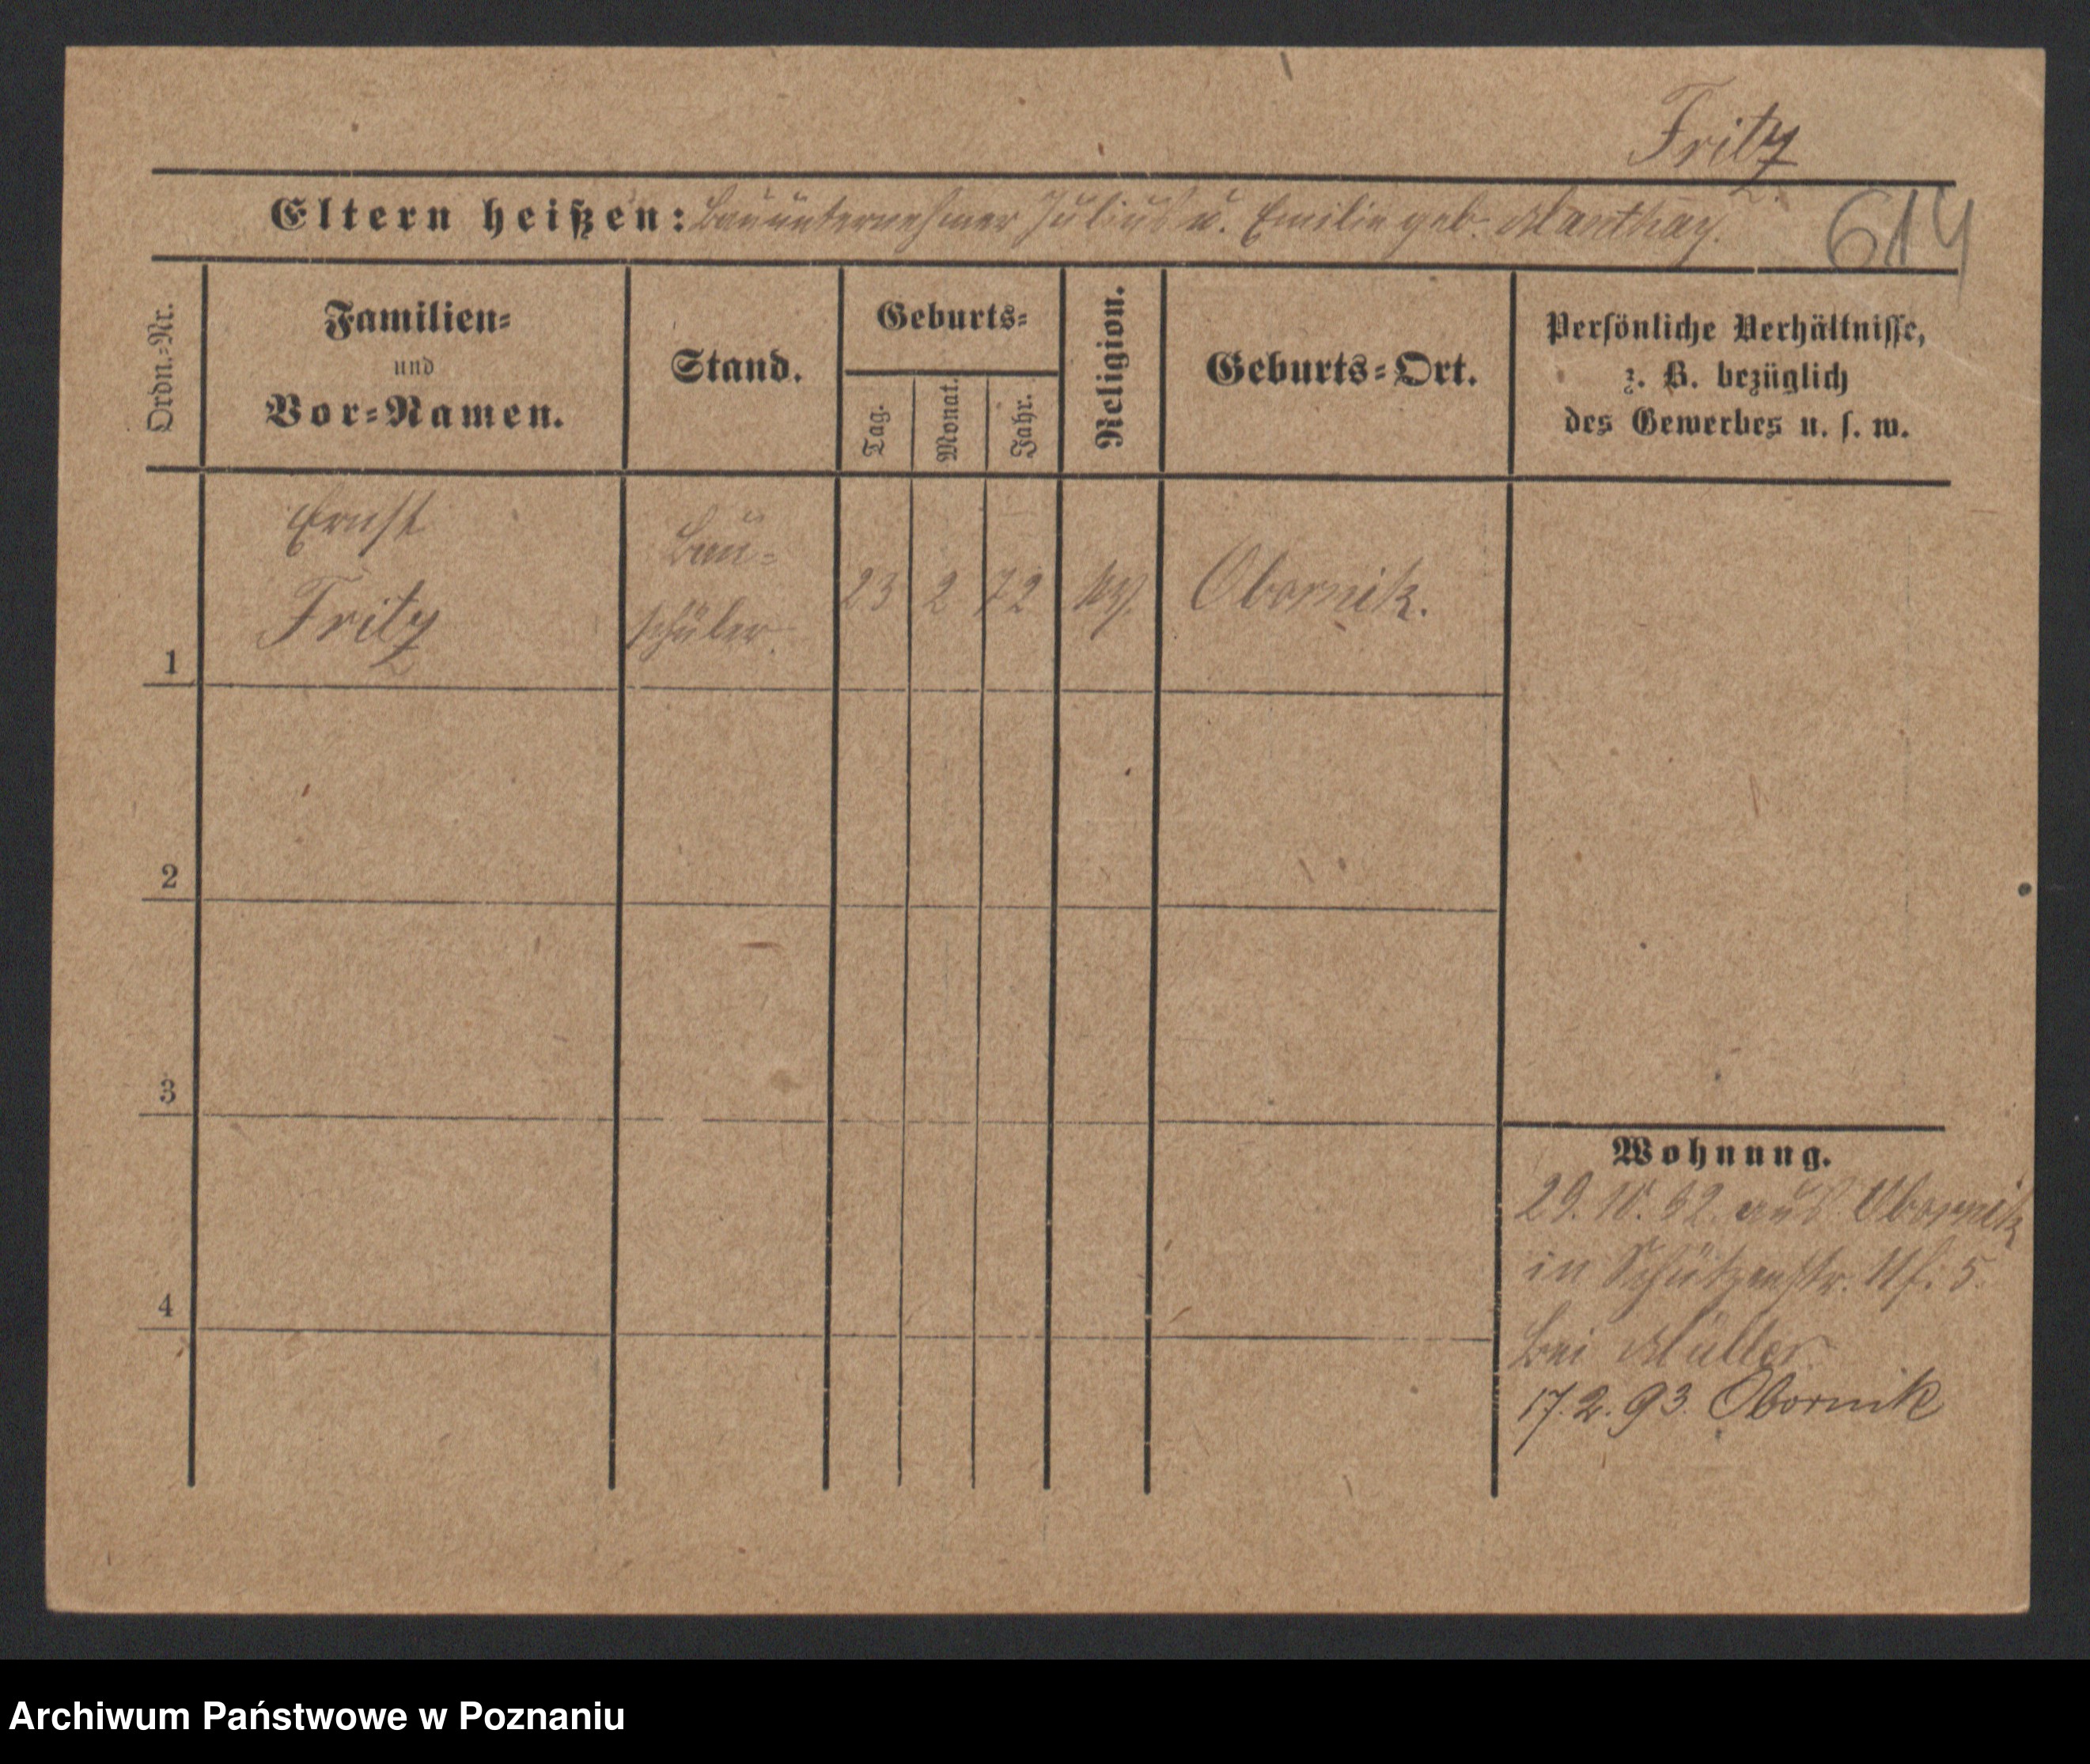 Fritz
Eltern heißen: Bauunternehmer Julius u. Emilie geb. Manthay.
614
Ordn.=Nr.
Familien=
und
Vor=Namen.
Stand.
Geburts=
Tag.
Monat.
Jahr.
Religion.
Geburts=Ort.
Persönliche Verhältnisse,
z. B. bezüglich
des Gewerbes u. s. w.
Ernst
Fritz
Bau=
schüler.
23 2 72
Obornik.
1
2
3
4
Wohnung.
29. 10. 92. aus Obornik
in Schützenstr. 5.
bei Müller.
17. 2. 93. Obornik
Archiwum Państwowe w Poznaniu